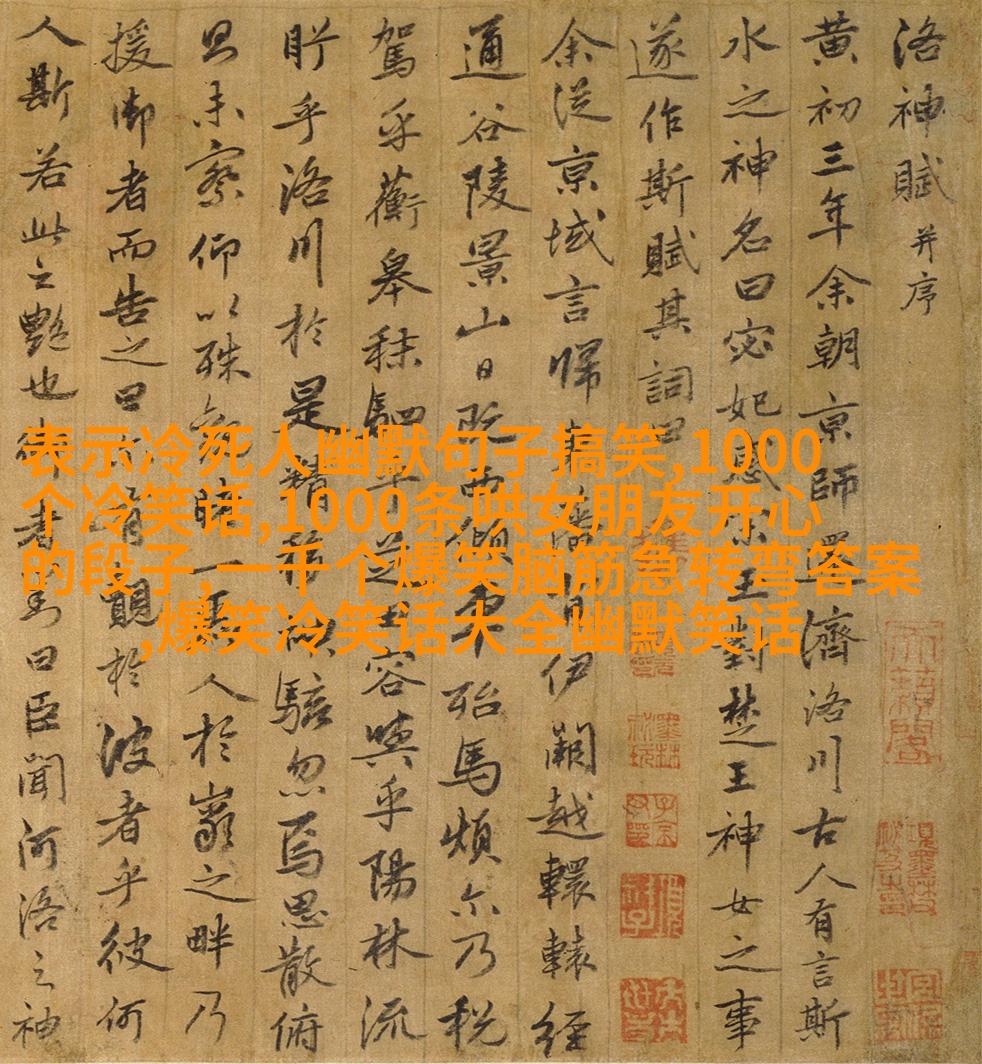 洛神賦并序
黄初三年余朝京師還濟洛川古人有言斯
水之神名曰宓妃感宋玉對楚王神女之事
遂作斯賦其詞曰
余從京域言歸東藩背伊闕越轘轅經
通谷陵景山日既西傾車殆馬煩尔乃税
駕乎蘅皋秣駟乎芝田容與乎陽林流
眄乎洛川於是精移神駭忽焉思散俯
則未察仰以殊觀睹一麗人於巖之畔乃
援御者而告之曰尔有覿於彼者乎彼何
人斯若此之艷也御者對曰臣聞河洛之神
表示冷死人幽默句子搞笑,1000
个冷笑话,1000条哄女朋友开心
的段子,一千个爆笑脑筋急转弯答案
,爆笑冷笑话大全幽默笑话